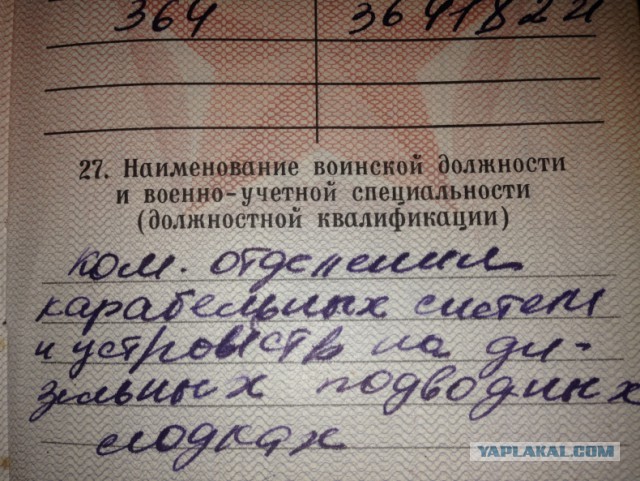 364 3641822И
27. Наименование воинской должности
и военно-учетной специальности
(должностной квалификации)
ком. отделения
карабельных систем
и устройств на ди-
зельных подводных
лодках
YAPLAKAL.COM